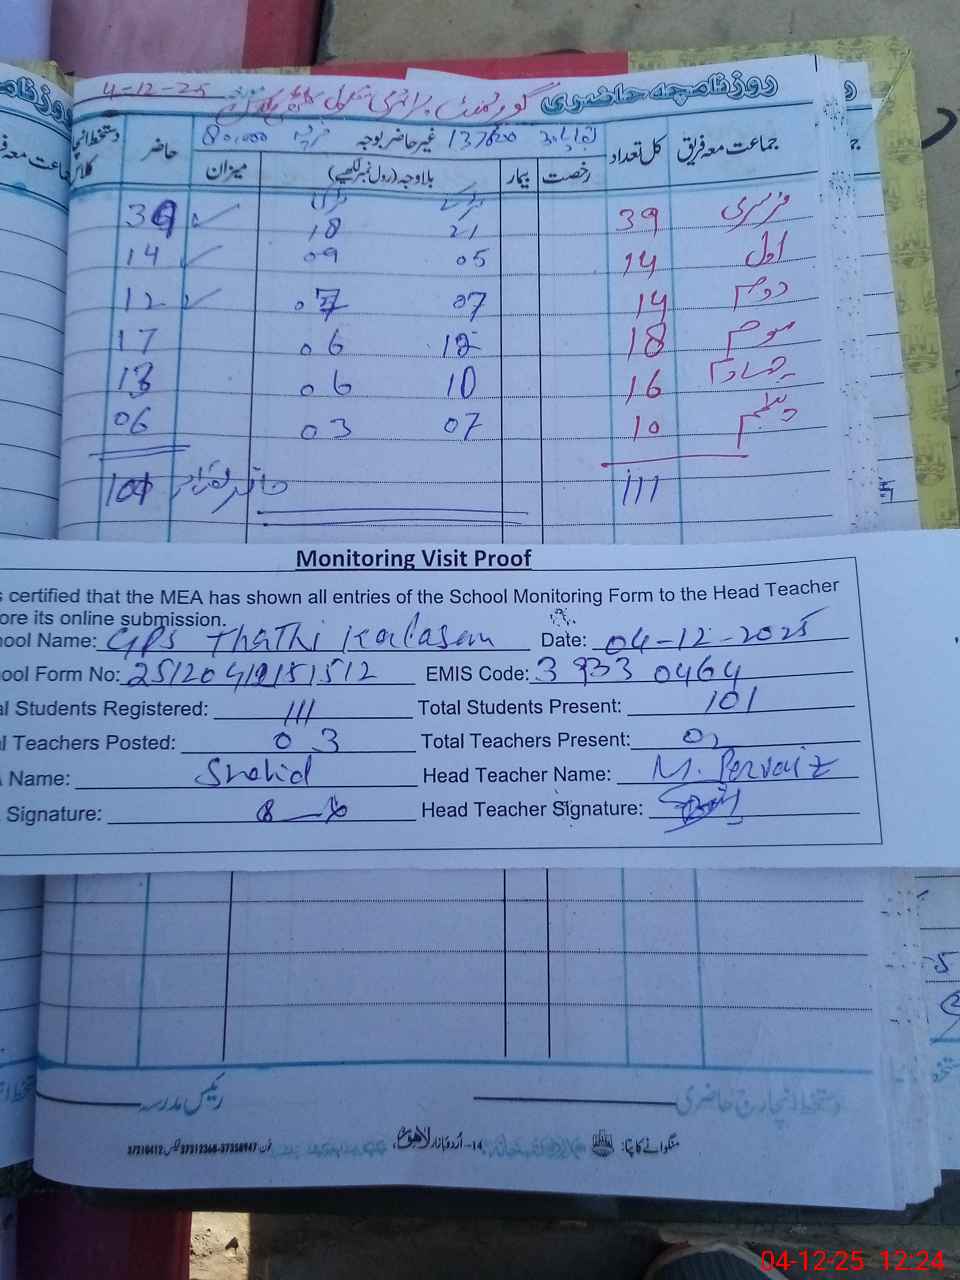 روزنامچہ حاضری گورنمنٹ پرائمری سکول 4-12-25
جماعت معہ فریق کل تعداد 137600 غیر حاضر بوجہ 80,000 حاضر
رخصت بیمار بلاوجہ (رول نمبر لکھیے) میزان
نرسری 39 21 18 39 ✓
اول 14 05 09 14 ✓
دوم 14 07 07 12 ✓
سوم 18 12 06 17
چہارم 16 10 06 13
پنجم 10 07 03 06
111 حاضر تعداد 101
Monitoring Visit Proof
certified that the MEA has shown all entries of the School Monitoring Form to the Head Teacher
ore its online submission.
ool Name: GPS Thathi Kalasan Date: 04-12-2025
ool Form No: EMIS Code: 39330464
l Students Registered: 111 Total Students Present: 101
l Teachers Posted: 03 Total Teachers Present:
Name: Shahid Head Teacher Name: M. Pervaiz
Signature: Head Teacher Signature:
دستخط انچارج حاضری رئیس مدرسہ
منگوانے کا پتا: 14-اردو بازار لاہور
04-12-25 12:24